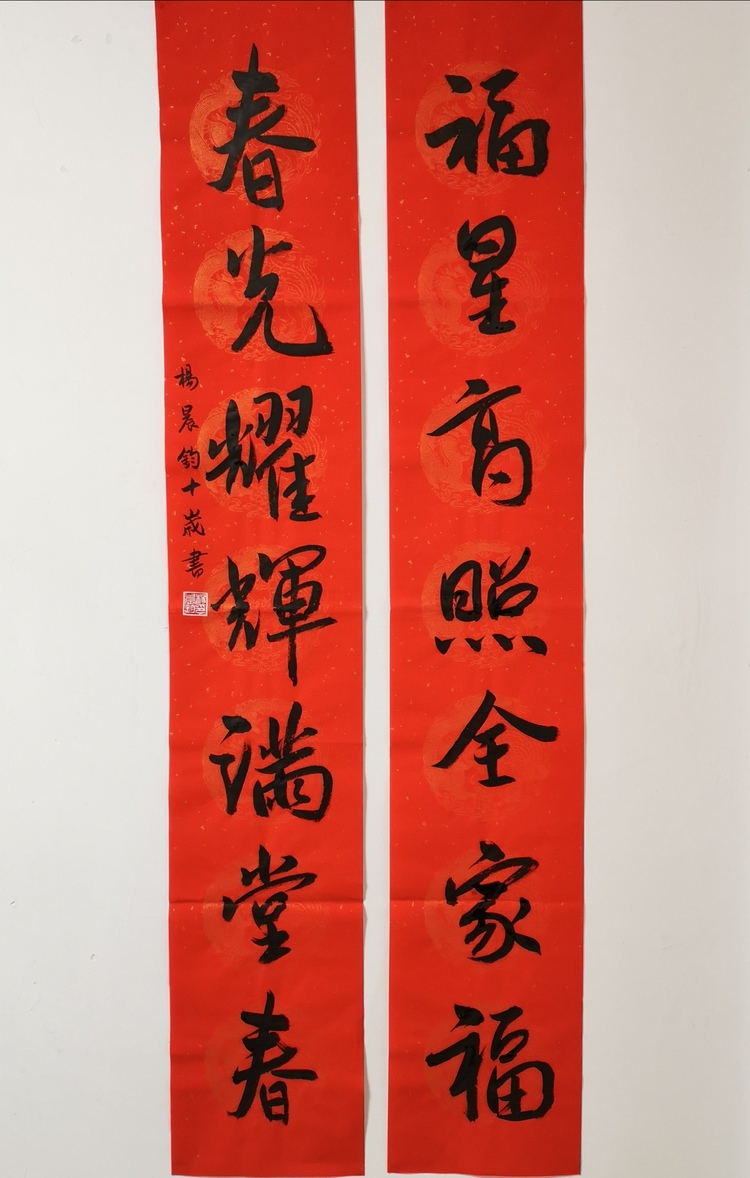 福星高照全家福
春光耀輝满堂春
楊晨鈞十歲書